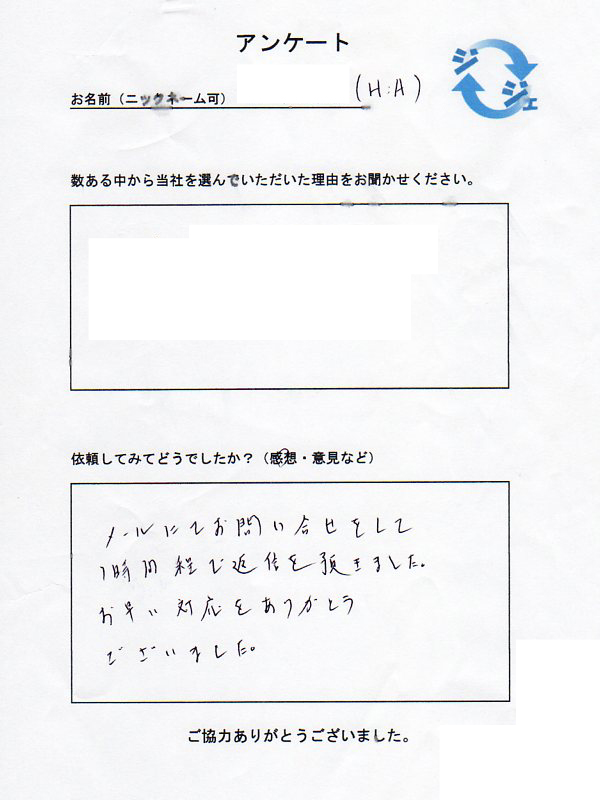 アンケート
ジ
ジェ
お名前（ニックネーム可）
(H.A)
数ある中から当社を選んでいただいた理由をお聞かせください。
依頼してみてどうでしたか？（感想・意見など）
メールにてお問い合せをして
1時間程で返信を頂きました。
お早い対応をありがとう
ございました。
ご協力ありがとうございました。